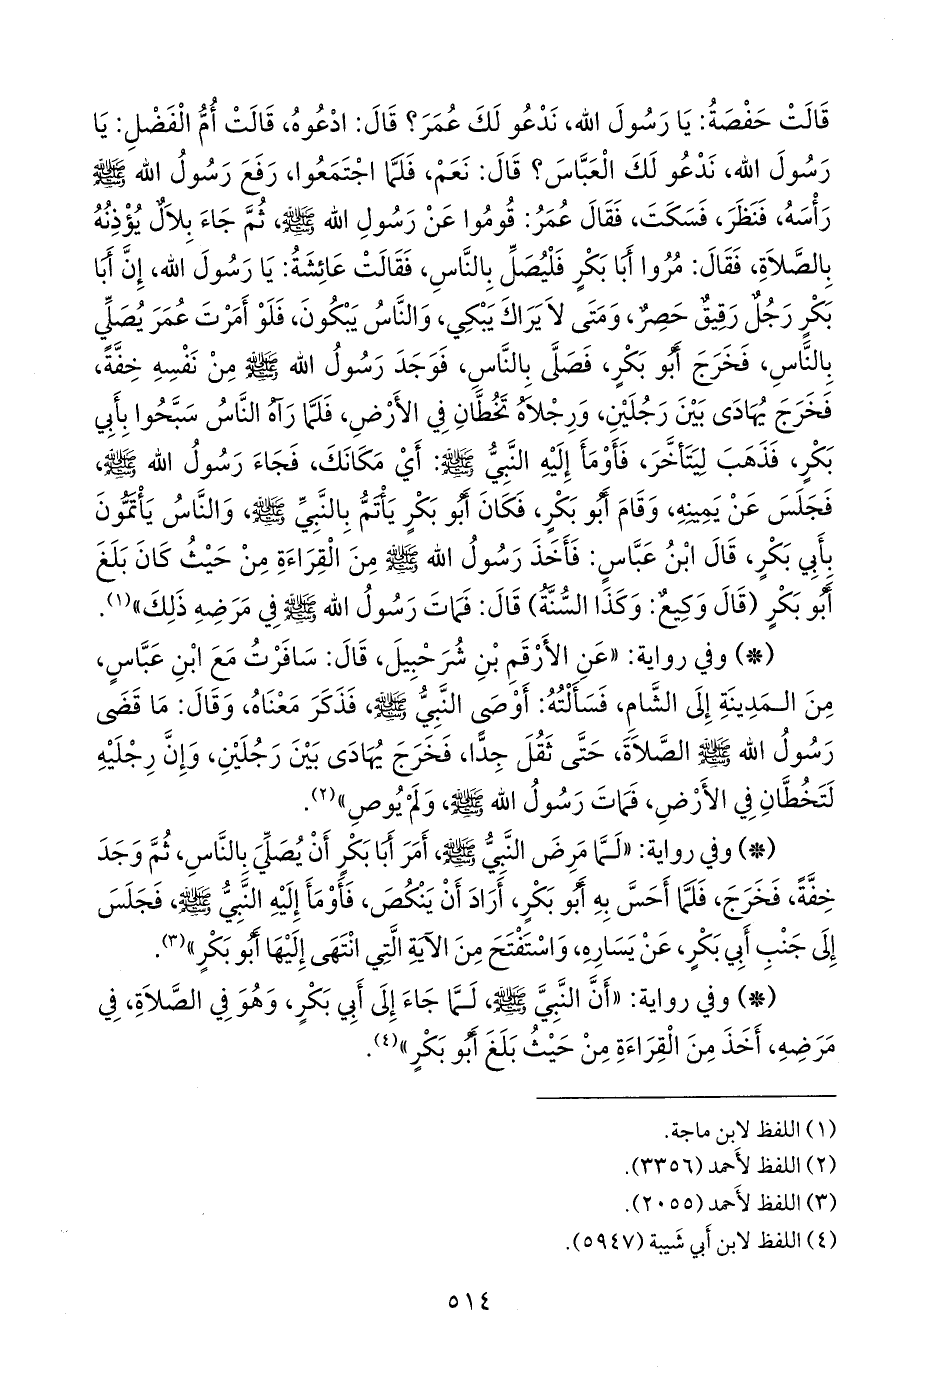 قَالَتْ حَفْصَةُ: يَا رَسُولَ الله، نَدْعُو لَكَ عُمَرَ؟ قَالَ: ادْعُوهُ، قَالَتْ أُمُّ الْفَضْلِ: يَا
رَسُولَ الله، نَدْعُو لَكَ الْعَبَّاسَ؟ قَالَ: نَعَمْ، فَلَمَّا اجْتَمَعُوا، رَفَعَ رَسُولُ الله ﷺ
رَأْسَهُ، فَنَظَرَ، فَسَكَتَ، فَقَالَ عُمَرُ: قُومُوا عَنْ رَسُولِ الله ﷺ، ثُمَّ جَاءَ بِلَالٌ يُؤْذِنُهُ
بِالصَّلَاةِ، فَقَالَ: مُرُوا أَبَا بَكْرٍ فَلْيُصَلِّ بِالنَّاسِ، فَقَالَتْ عَائِشَةُ: يَا رَسُولَ الله، إِنَّ أَبَا
بَكْرٍ رَجُلٌ رَقِيقٌ حَصِرٌ، وَمَتَى لَا يَرَاكَ يَبْكِي، وَالنَّاسُ يَبْكُونَ، فَلَوْ أَمَرْتَ عُمَرَ يُصَلِّي
بِالنَّاسِ، فَخَرَجَ أَبُو بَكْرٍ، فَصَلَّى بِالنَّاسِ، فَوَجَدَ رَسُولُ الله ﷺ مِنْ نَفْسِهِ خِفَّةً،
فَخَرَجَ يُهَادَى بَيْنَ رَجُلَيْنِ، وَرِجْلَاهُ تَخُطَّانِ فِي الأَرْضِ، فَلَمَّا رَآهُ النَّاسُ سَبَّحُوا بِأَبِي
بَكْرٍ، فَذَهَبَ لِيَتَأَخَّرَ، فَأَوْمَأَ إِلَيْهِ النَّبِيُّ ﷺ: أَيْ مَكَانَكَ، فَجَاءَ رَسُولُ الله ﷺ،
فَجَلَسَ عَنْ يَمِينِهِ، وَقَامَ أَبُو بَكْرٍ، فَكَانَ أَبُو بَكْرٍ يَأْتَمُّ بِالنَّبِيِّ ﷺ، وَالنَّاسُ يَأْتَمُّونَ
بِأَبِي بَكْرٍ، قَالَ ابْنُ عَبَّاسٍ: فَأَخَذَ رَسُولُ الله ﷺ مِنَ الْقِرَاءَةِ مِنْ حَيْثُ كَانَ بَلَغَ
أَبُو بَكْرٍ (قَالَ وَكِيعٌ: وَكَذَا السُّنَّةُ) قَالَ: فَمَاتَ رَسُولُ الله ﷺ فِي مَرَضِهِ ذَلِكَ»(١).
(*) وفي رواية: «عَنِ الأَرْقَمِ بْنِ شُرَحْبِيلَ، قَالَ: سَافَرْتُ مَعَ ابْنِ عَبَّاسٍ،
مِنَ الْمَدِينَةِ إِلَى الشَّامِ، فَسَأَلْتُهُ: أَوْصَى النَّبِيُّ ﷺ، فَذَكَرَ مَعْنَاهُ، وَقَالَ: مَا قَضَى
رَسُولُ الله ﷺ الصَّلَاةَ، حَتَّى ثَقُلَ جِدًّا، فَخَرَجَ يُهَادَى بَيْنَ رَجُلَيْنِ، وَإِنَّ رِجْلَيْهِ
لَتَخُطَّانِ فِي الأَرْضِ، فَمَاتَ رَسُولُ الله ﷺ، وَلَمْ يُوصِ»(٢).
(*) وفي رواية: «لَمَّا مَرِضَ النَّبِيُّ ﷺ، أَمَرَ أَبَا بَكْرٍ أَنْ يُصَلِّيَ بِالنَّاسِ، ثُمَّ وَجَدَ
خِفَّةً، فَخَرَجَ، فَلَمَّا أَحَسَّ بِهِ أَبُو بَكْرٍ، أَرَادَ أَنْ يَنْكُصَ، فَأَوْمَأَ إِلَيْهِ النَّبِيُّ ﷺ، فَجَلَسَ
إِلَى جَنْبِ أَبِي بَكْرٍ، عَنْ يَسَارِهِ، وَاسْتَفْتَحَ مِنَ الآيَةِ الَّتِي انْتَهَى إِلَيْهَا أَبُو بَكْرٍ»(٣).
(*) وفي رواية: «أَنَّ النَّبِيَّ ﷺ، لَمَّا جَاءَ إِلَى أَبِي بَكْرٍ، وَهُوَ فِي الصَّلَاةِ، فِي
مَرَضِهِ، أَخَذَ مِنَ الْقِرَاءَةِ مِنْ حَيْثُ بَلَغَ أَبُو بَكْرٍ»(٤).
(١) اللفظ لابن ماجة.
(٢) اللفظ لأَحمد (٣٣٥٦).
(٣) اللفظ لأَحمد (٢٠٥٥).
(٤) اللفظ لابن أَبي شَيبة (٥٩٤٧).
٥١٤